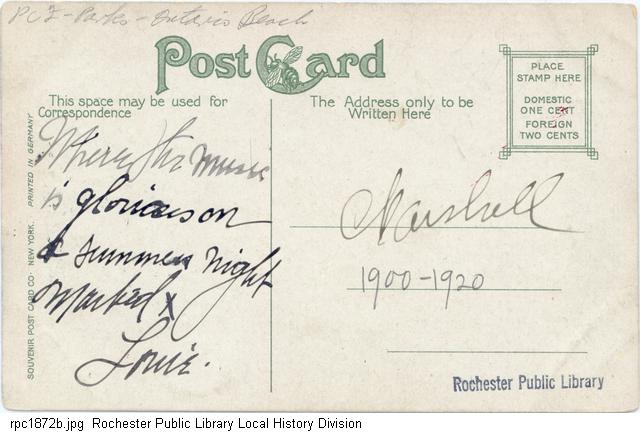 PC2 - Parks - Ontario Beach
Post Card
This space may be used for
Correspondence
The Address only to be
Written Here
PLACE
STAMP HERE
DOMESTIC
ONE CENT
FOREIGN
TWO CENTS
PRINTED IN GERMANY
SOUVENIR POST CARD CO. NEW YORK.
Where the music
is glorious on
a summer night
Marked x
Louie.
Marshall
1900-1920
Rochester Public Library
rpc1872b.jpg Rochester Public Library Local History Division